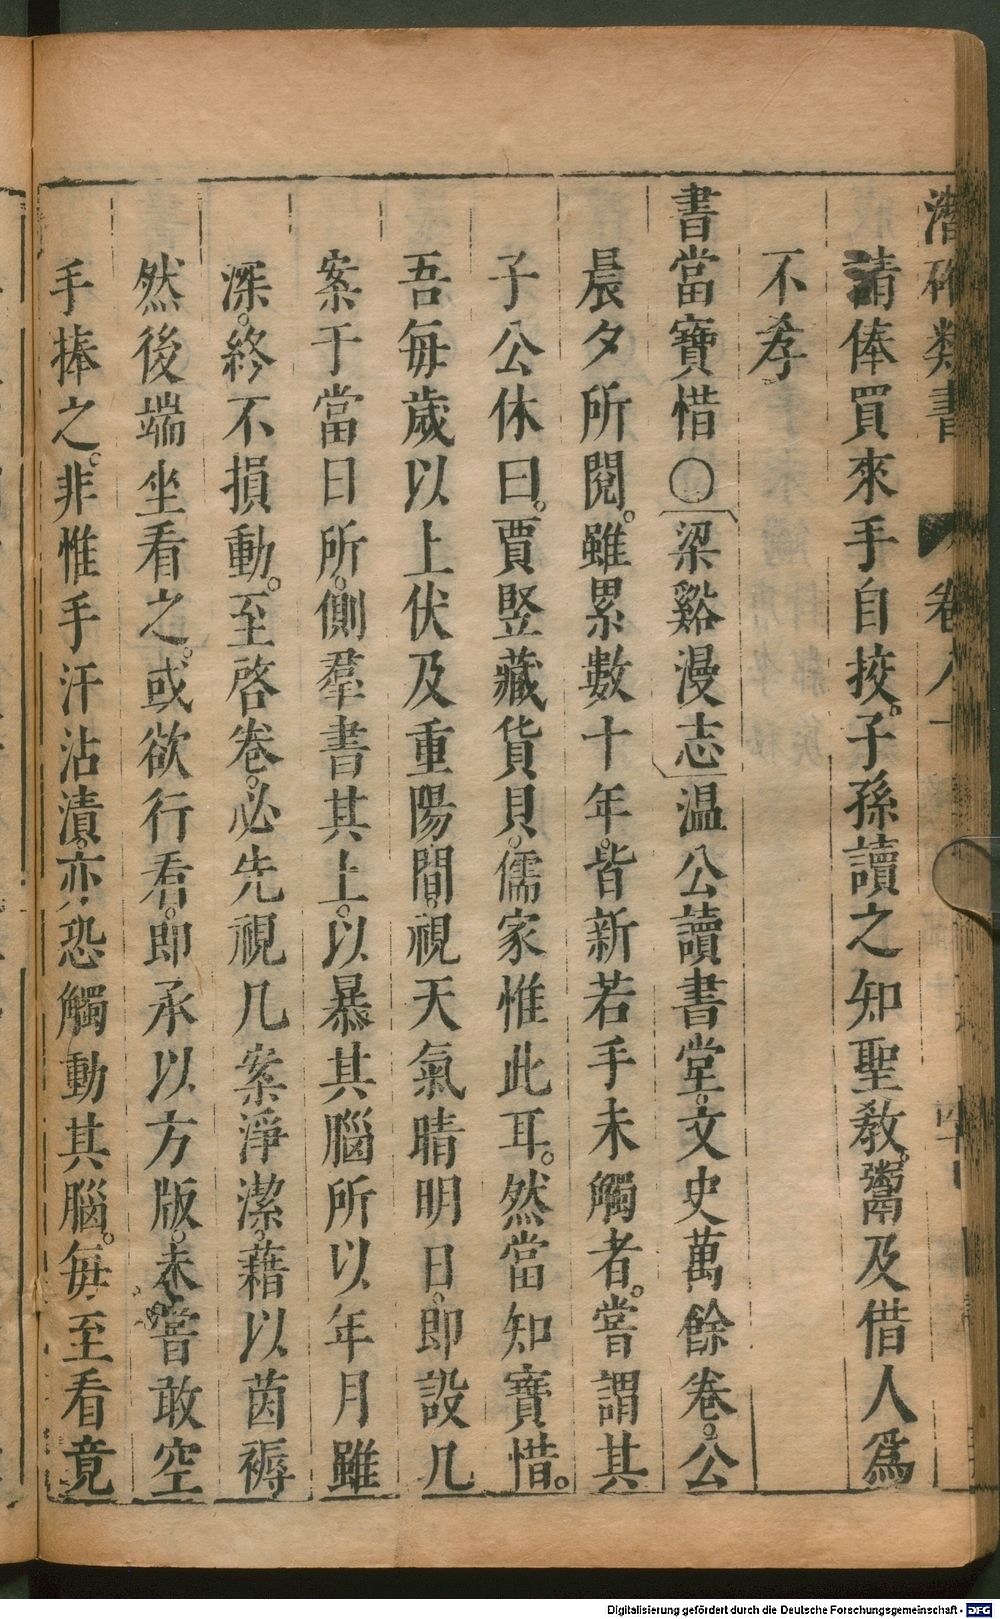 類書 卷八十
清俸買來手自挍。子孫讀之知聖教。鬻及借人爲
不孝
書當寶惜〇梁谿漫志温公讀書堂。文史萬餘卷。公
晨夕所閱。雖累數十年。皆新若手未觸者。嘗謂其
子公休曰。賈豎藏貨貝。儒家惟此耳。然當知寶惜。
吾每歲以上伏及重陽間。視天氣晴明日。即設几
案于當日所。側羣書其上。以暴其腦所以年月雖
深。終不損動。至啓卷。必先視几案淨潔。藉以茵褥
然後端坐看之。或欲行看。即承以方版。未嘗敢空
手捧之。非惟手汗沾漬。亦恐觸動其腦。每至看竟
Digitalisierung gefördert durch die Deutsche Forschungsgemeinschaft - DFG